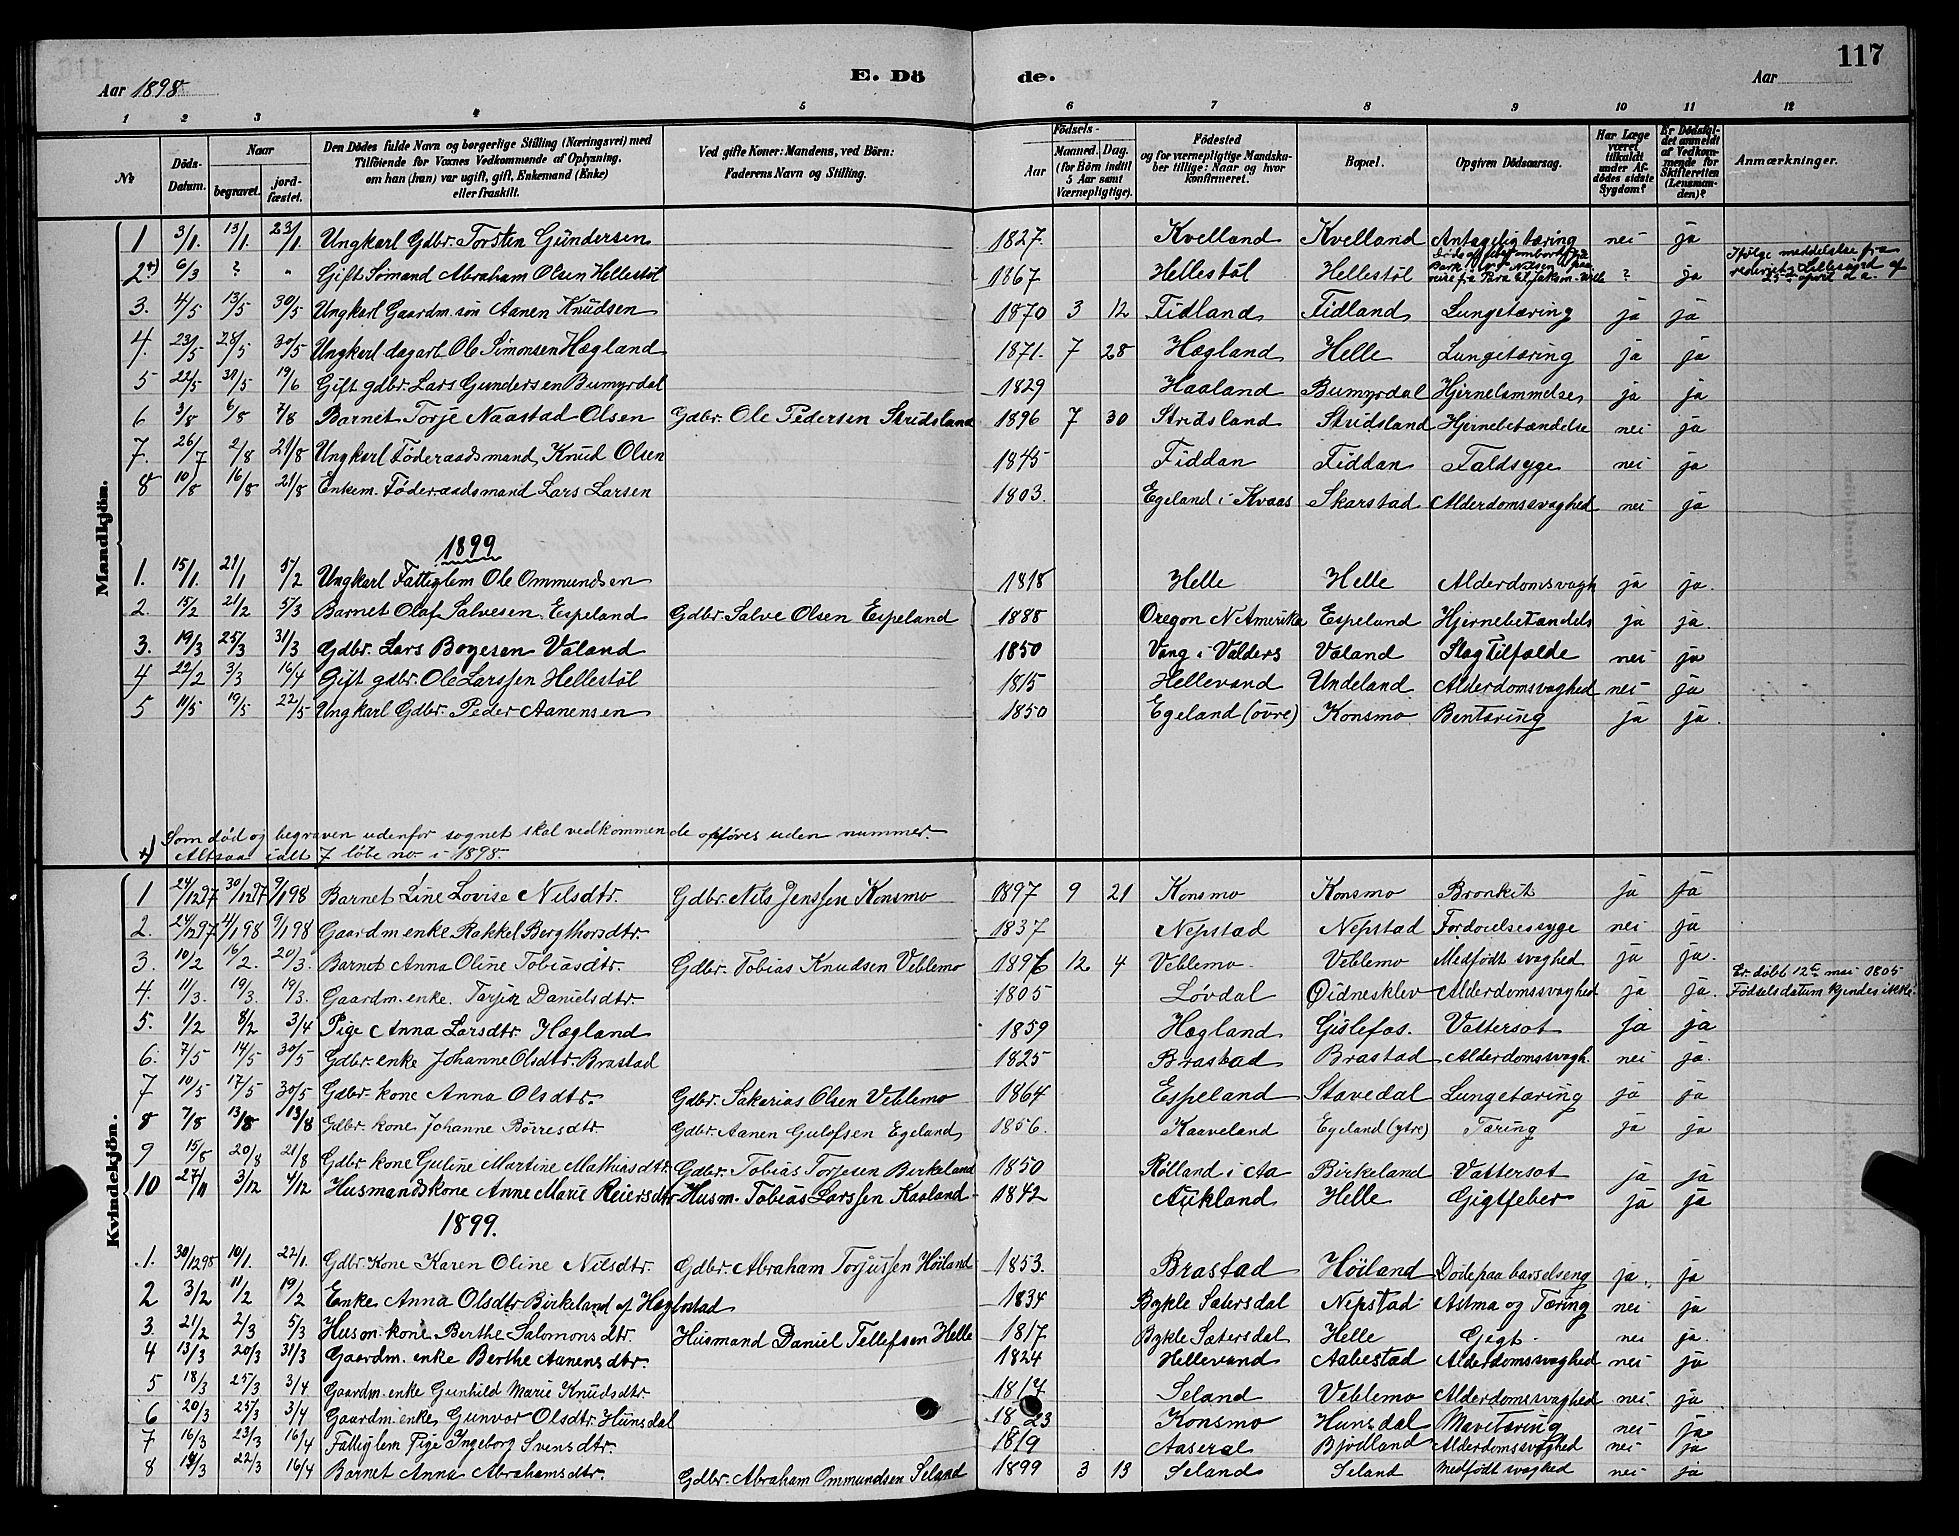 117
Aar 1898 E. Dö de. Aar
1 2 3 4 5 6 7 8 9 10 11 12
No. Döds-Datum. Naar begravet. jordfæstet. Den Dödes fulde Navn og borgerlige Stilling (Næringsvei) med Tilföiende for Voxnes Vedkommende af Oplysning, om han (hun) var ugift, gift, Enkemand (Enke) eller fraskilt. Ved gifte Koner: Mandens, ved Börn: Faderens Navn og Stilling. Födsels- Aar Maaned. Dag. (for Börn indtil 5 Aar samt Værnepligtige). Födested og for værnepligtige Mandskaber tillige: Naar og hvor konfirmeret. Bopæl. Opgiven Dödsaarsag. Har Læge været tilkaldt under Afdödes sidste Sygdom? Er Dödsfaldet anmeldt af Vedkommende for Skifteretten (Lensmanden)? Anmærkninger.
Mandkjön.
1 3/1. 13/1. 23/1 Ungkarl Gdbr. Torsten Gundersen 1827. Kvelland Kvelland Antagelig tæring nei ja
2+) 6/3 ? " Gift Sømand Abraham Olsen Hellestøl 1867 Hellestøl Hellestøl ? ja Ifølge meddelelse fra
3. 4/5 13/5 30/5 Ungkarl Gaardm. søn Aanen Knudsen 1870 3 12 Fidland Fidland Lungetæring ja ja
4. 23/5 28/5 30/5 Ungkarl dagarb. Ole Simonsen Hægland 1871. 7 28 Hægland Helle Lungetæring ja ja
5 22/5 31/5 19/6 Gift gdbr. Lars Gundersen Bumyrdal 1829 Haaland Bumyrdal Hjernelammelse ja ja
6 3/8 6/8 7/8 Barnet Torje Naastad Olsen Gdbr. Ole Pedersen Skridsland 1896 7 30 Skridsland Skridsland Hjernebetændelse nei ja
7. 26/7 2/8 21/8 Ungkarl Føderaadsmand Knud Olsen 1845 Fiddan Fiddan Faldsyge nei ja
8 10/8 16/8 21/8 Enkem. Føderaadsmand Lars Larsen 1803. Egeland i Kvaas Skarstad Alderdomssvaghed nei ja
1899
1. 15/1. 21/1 5/2 Ungkarl Fattiglem Ole Ommundsen 1818 Helle Helle Alderdomsvagh ja ja.
2. 15/2 21/2 5/3 Barnet Olaf Salvesen Espeland Gdbr. Salve Olsen Espeland 1888 Oregon N Amerika Espeland Hjernebetændels ja ja.
3. 19/3 25/3 31/3 Gdbr. Lars Boyesen Valand 1850 Vang i Valders Valand Slagtilfælde nei ja
4 22/2 3/3 16/4 Gift gdbr. Ole Larssen Hellestøl 1815 Hellevand Undeland Alderdomsvaghed nei ja
5 11/5 19/5 22/5 Ungkarl Gdbr. Peder Aanensen 1850 Egeland (øvre) Konsmo Bentæring ja ja.
+) Som død og begraven udenfor sognet skal vedkommende opføres uden nummer.
Altsaa ialt 7 løbe no. i 1898.
Kvindekjön.
1 24/12 97 30/12 97 9/1 98 Barnet Line Lovise Nilsdtr. Gdbr. Nils Jenssen Konsmo 1897 9 21 Konsmo Konsmo Bronkit ja ja
2. 24/12 97 4/1 98 9/1 98 Gaardm enke Rakkel Bergthorsdtr. 1837 Nepstad Nepstad nei ja
3. 10/2 16/2. 20/3. Barnet Anna Oline Tobiasdtr. Gdbr. Tobias Knudsen Veblemo 1896 12 4 Veblemo Veblemo Medfødt svaghed ja ja.
4. 11/3. 19/3. 19/3. Gaardm. enke. Tarjer Danielsdtr. 1805 Løvdal Øidnesklev Alderdomssvaghed ja ja. Er døbt 12te mai 1805 Fødselsdatum kjendes ikke.
5. 1/2 8/2 3/4 Pige Anna Larsdtr. Hægland 1859 Hægland Gislefos. Vattersot ja ja
6. 7/5 14/5 30/5 Gdbr. enke Johanne Olsdtr. Brastad 1825 Brastad Brastad Alderdomssvagh. nei ja.
7 10/5 17/5 30/5 Gdbr. kone Anna Olsdtr. Gdbr. Sakarias Olsen Veblemo 1864 Espeland Stavedal Lungetæring ja ja
8 7/8 13/8 13/8 Gdbr. kone Johanne Börresdtr. Gdbr. Aanen Gulofsen Egeland 1856. Kaaveland Egeland (ytre) Tæring ja ja
9 15/8 20/8 21/8 Gdbr. kone Guline Martine Mathiasdtr. Gdbr. Tobias Torjesen Birkeland 1850 Rølland i Aa Birkeland Vattersot ja ja
10 27/11 3/12 4/12 Husmandskone Anne Marie Reiersdtr. Husm. Tobias Larssen Kaaland 1842 Aukland Helle Gigtfeber ja ja
1899.
1. 30/12 98 10/1. 22/1. Gdbr. Kone Karen Oline Nilsdtr. Gdbr. Abraham Torjussen Höiland 1853. Brastad Höiland Døde paa barselseng ja. ja
2 3/2 11/2 19/2 Enke Anna Olsdtr. Birkeland af 1834 Bykle Sætersdal Nepstad Astma og Tæring nei ja
3. 21/2 2/3 5/3 Husm. kone Berthe Salomonsdtr. Husmand Daniel Tellefsen Helle 1817 Bykle Sætersdal Helle Gigt. nei ja.
4 13/3 20/3 31/3 Gaardm. enke Berthe Aanensdtr. 1824 Hellevand Aabestad Alderdomssvaghed nei ja
5 18/3 25/3 3/4 Gaardm. enke Gunhild Marie Knudsdtr 1817 Seland Veblemo Alderdomssvaghed nei ja
6 20/3 25/3 3/4 Gaardm. enke Gunvor Olsdtr. Hunsdal 1823 Konsmo Hunsdal Mavetæring nei ja
7 16/3 23/3 16/4 Fattiglem Pige Ingeborg Svensdtr. 1819 Aaseral Bjodland Alderdomssvaghed nei ja
8 14/3 22/3 16/4 Barnet Anna Abrahamsdtr. Gdbr. Abraham Ommundsen Seland 1899 3 13 Seland Seland Medfödt svaghed nei ja